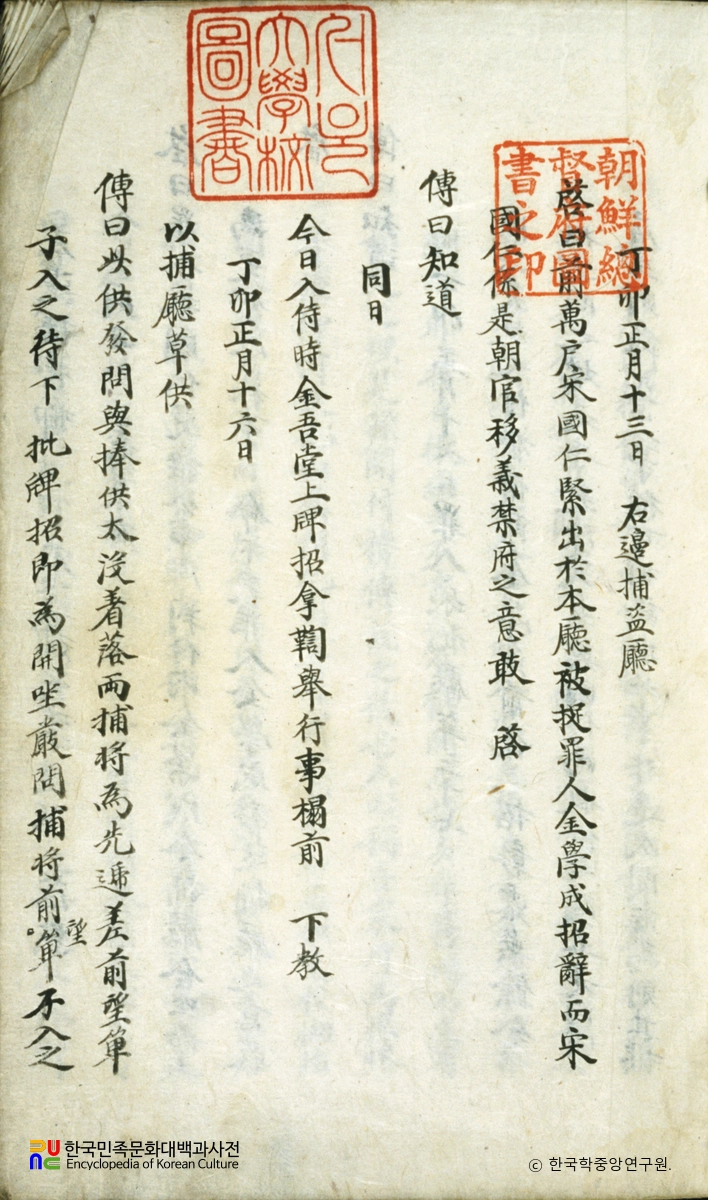 丁卯正月十三日 右邊捕盜廳
啓曰前萬戶宋國仁緊出於本廳被捉罪人金學成招辭而宋
國仁係是朝官移義禁府之意敢 啓
傳曰知道
同日
今日入侍時金吾堂上牌招拿鞫舉行事榻前 下教
丁卯正月十六日
以捕廳草供
傳曰此供發問與捧供太沒着落兩捕將爲先遞差前望單
子入之待下 批牌招即爲開坐嚴問捕將前望單不入之
朝鮮總
督府圖
書之印
大學校
圖書
한국민족문화대백과사전
Encyclopedia of Korean Culture
© 한국학중앙연구원.